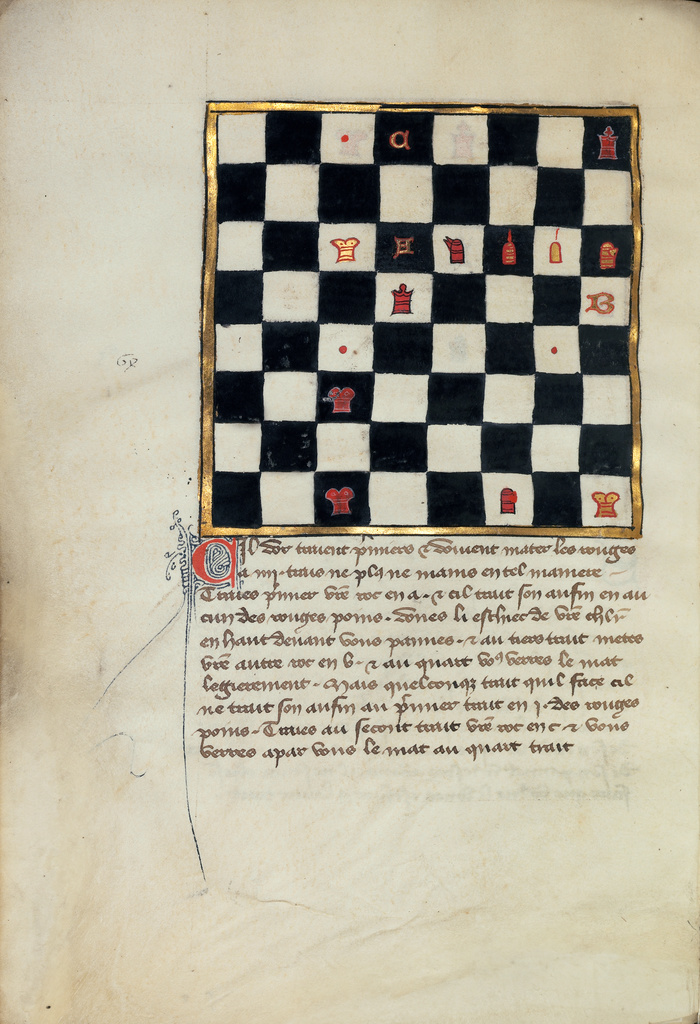 a
H
B
Cil dor traient p̃miers ⁊ doivent mater les rouges
a iiij· trais ne pl9 ne mains en tel maniere
Traies p̃mier vr̃e roc en a· ⁊ cil trait son aufin en au
cun des rouges poins· dones li eschec de vr̃e chl̃r
en haut devant vous pannies· ⁊ au tiers trait metes
vr̃e autre roc en b· ⁊ au quart vo9 verres le mat
legierement· Mais quelconq; trait quil face cil
ne trait son aufin au p̃mier trait en j· des rouges
poins· Traies au secont trait vr̃e roc en c ⁊ vous
verres apar vous le mat au quart trait